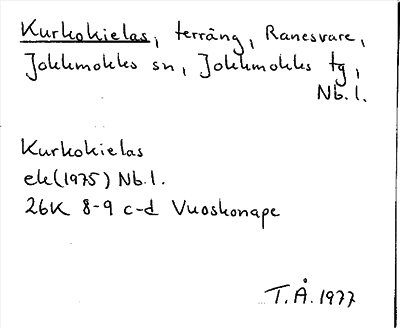 Kurkokielas, terräng, Ranesvare,
Jokkmokks sn, Jokkmokks tg,
Nb. l.
Kurkokielas
ek(1975) Nb. l.
26K 8-9 c-d Vuoskonape
T.Å. 1977